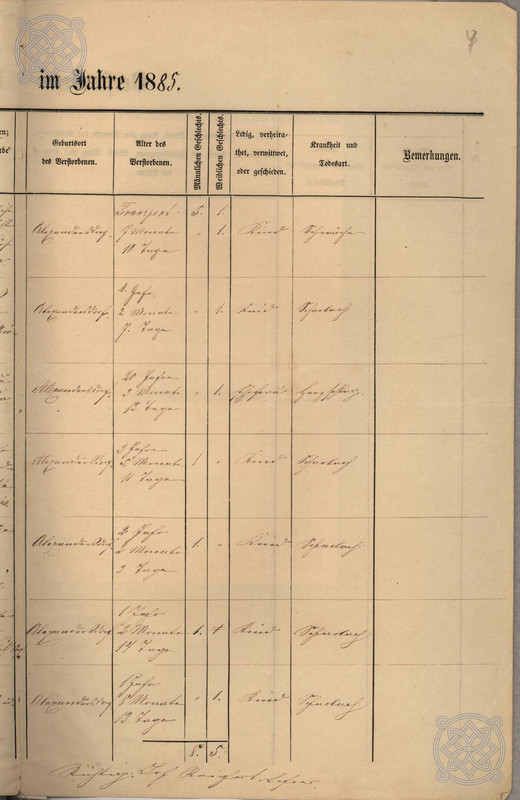 im Jahre 1885.
Geburtsort
des Verstorbenen.
Alter des
Verstorbenen.
Männlichen Geschlechts.
Weiblichen Geschlechts.
Ledig, verheira-
thet, verwittwet,
oder geschieden.
Krankheit und
Todesart.
Bemerkungen.
Transport 5. 1.
Alexandersdorf. 7 Monate " 1. Kind Schwäche
10 Tage
1. Jahr
Alexandersdorf. 2 Monate " 1. Kind Scharlach
7. Tage
20 Jahre
Alexandersdorf. 3 Monate " 1. Ehefrau
13 Tage
3 Jahre
Alexandersdorf. 5 Monate 1 " Kind Scharlach
11 Tage
2 Jahr
Alexandersdorf. 2 Monate 1. " Kind Scharlach
3 Tage
1 Jahr
Alexandersdorf. 2 Monate 1. Kind Scharlach
14 Tage
1 Jahr
Alexandersdorf 8 Monate " 1. Kind Scharlach
13 Tage
8. 5.